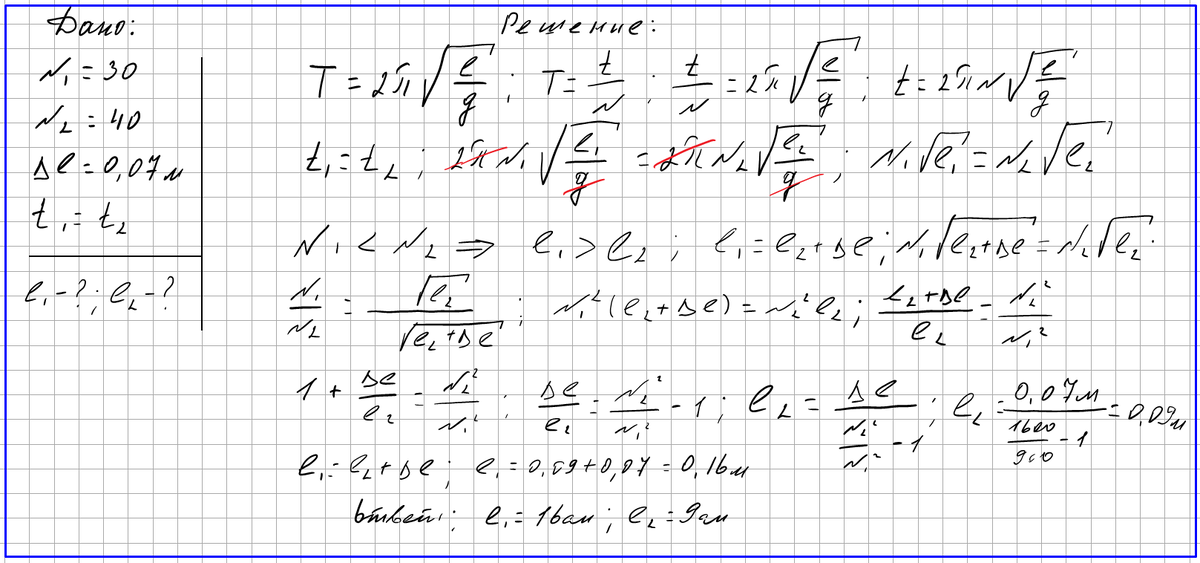 Дано:
N₁ = 30
N₂ = 40
Δl = 0,07 м
t₁ = t₂
l₁ - ? ; l₂ - ?
Решение:
T = 2π√(l/g) ; T = t/N ; t/N = 2π√(l/g) ; t = 2πN√(l/g)
t₁ = t₂ ; 2πN₁√(l₁/g) = 2πN₂√(l₂/g) ; N₁√l₁ = N₂√l₂
N₁ < N₂ ⇒ l₁ > l₂ ; l₁ = l₂ + Δl ; N₁√(l₂+Δl) = N₂√l₂ .
N₁/N₂ = √l₂/√(l₂+Δl) ; N₁²(l₂+Δl) = N₂²l₂ ; (l₂+Δl)/l₂ = N₂²/N₁²
1 + Δl/l₂ = N₂²/N₁² ; Δl/l₂ = N₂²/N₁² - 1 ; l₂ = Δl/(N₂²/N₁² - 1) ; l₂ = 0,07м/(1600/900 - 1) = 0,09м
l₁ = l₂ + Δl ; l₁ = 0,09 + 0,07 = 0,16м
Ответ: l₁ = 16см ; l₂ = 9см